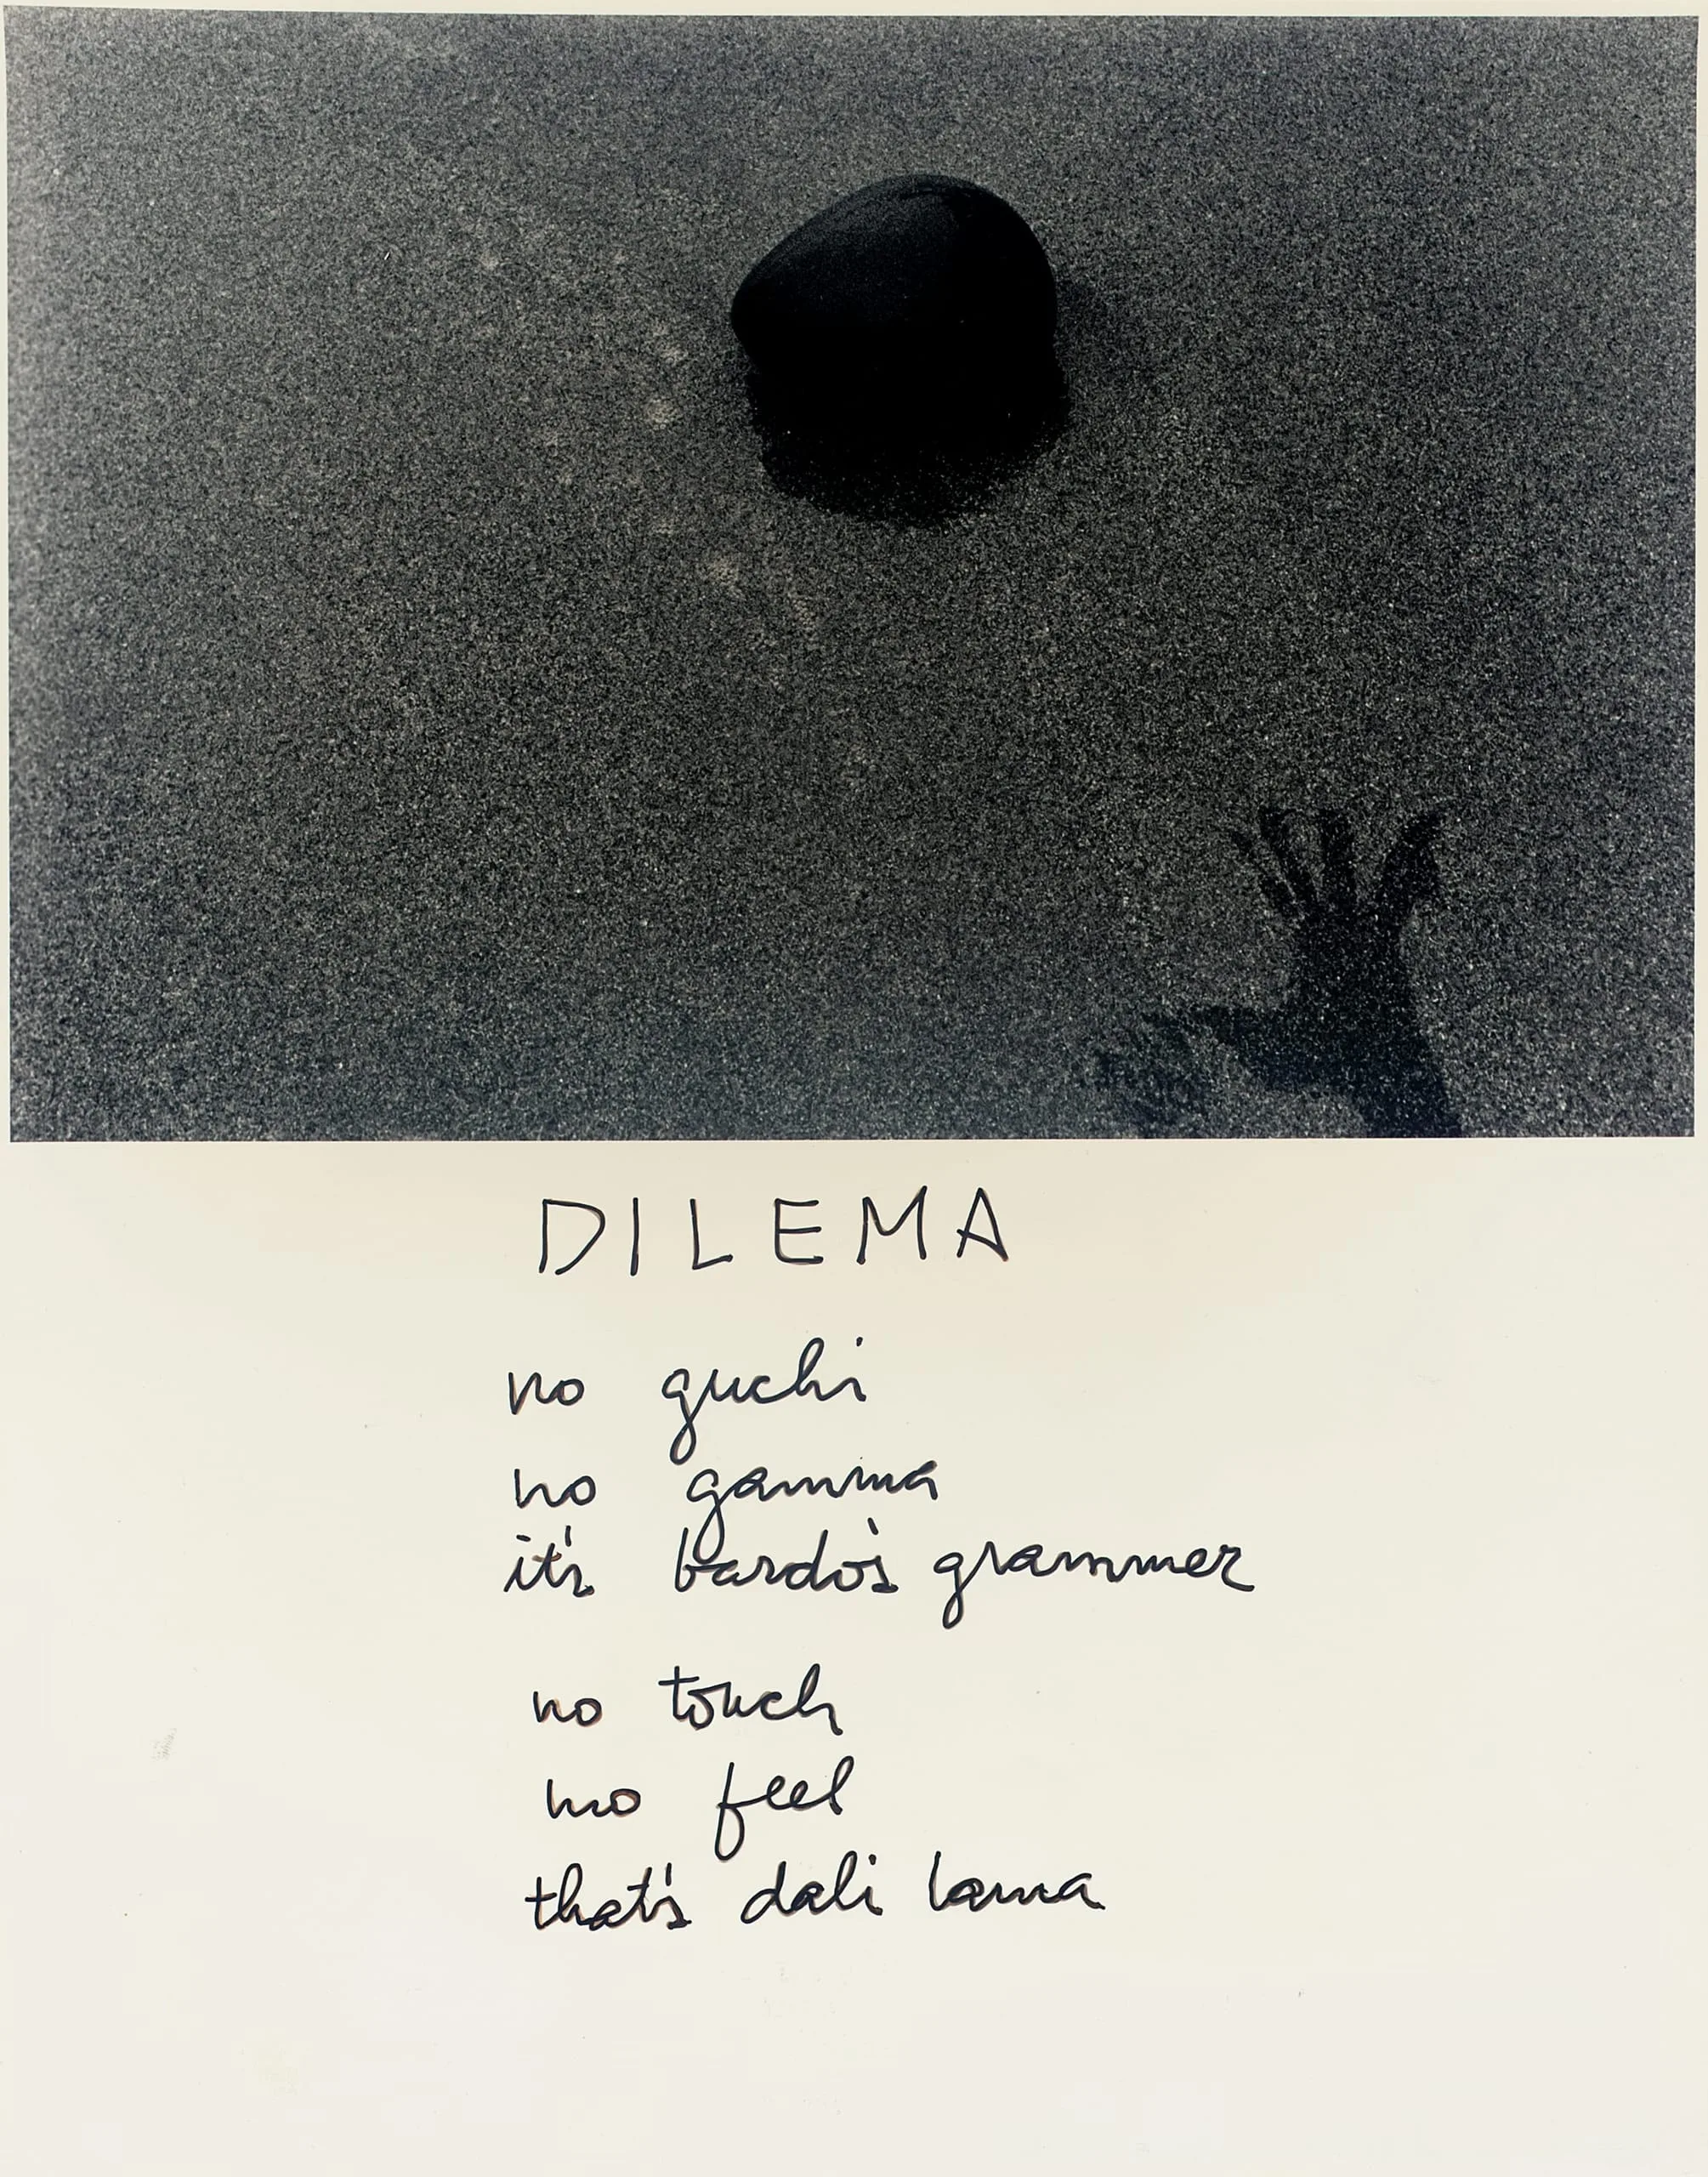 DILEMA
no guchi
no gamma
it's bardo's grammer
no touch
no feel
that's dali lama